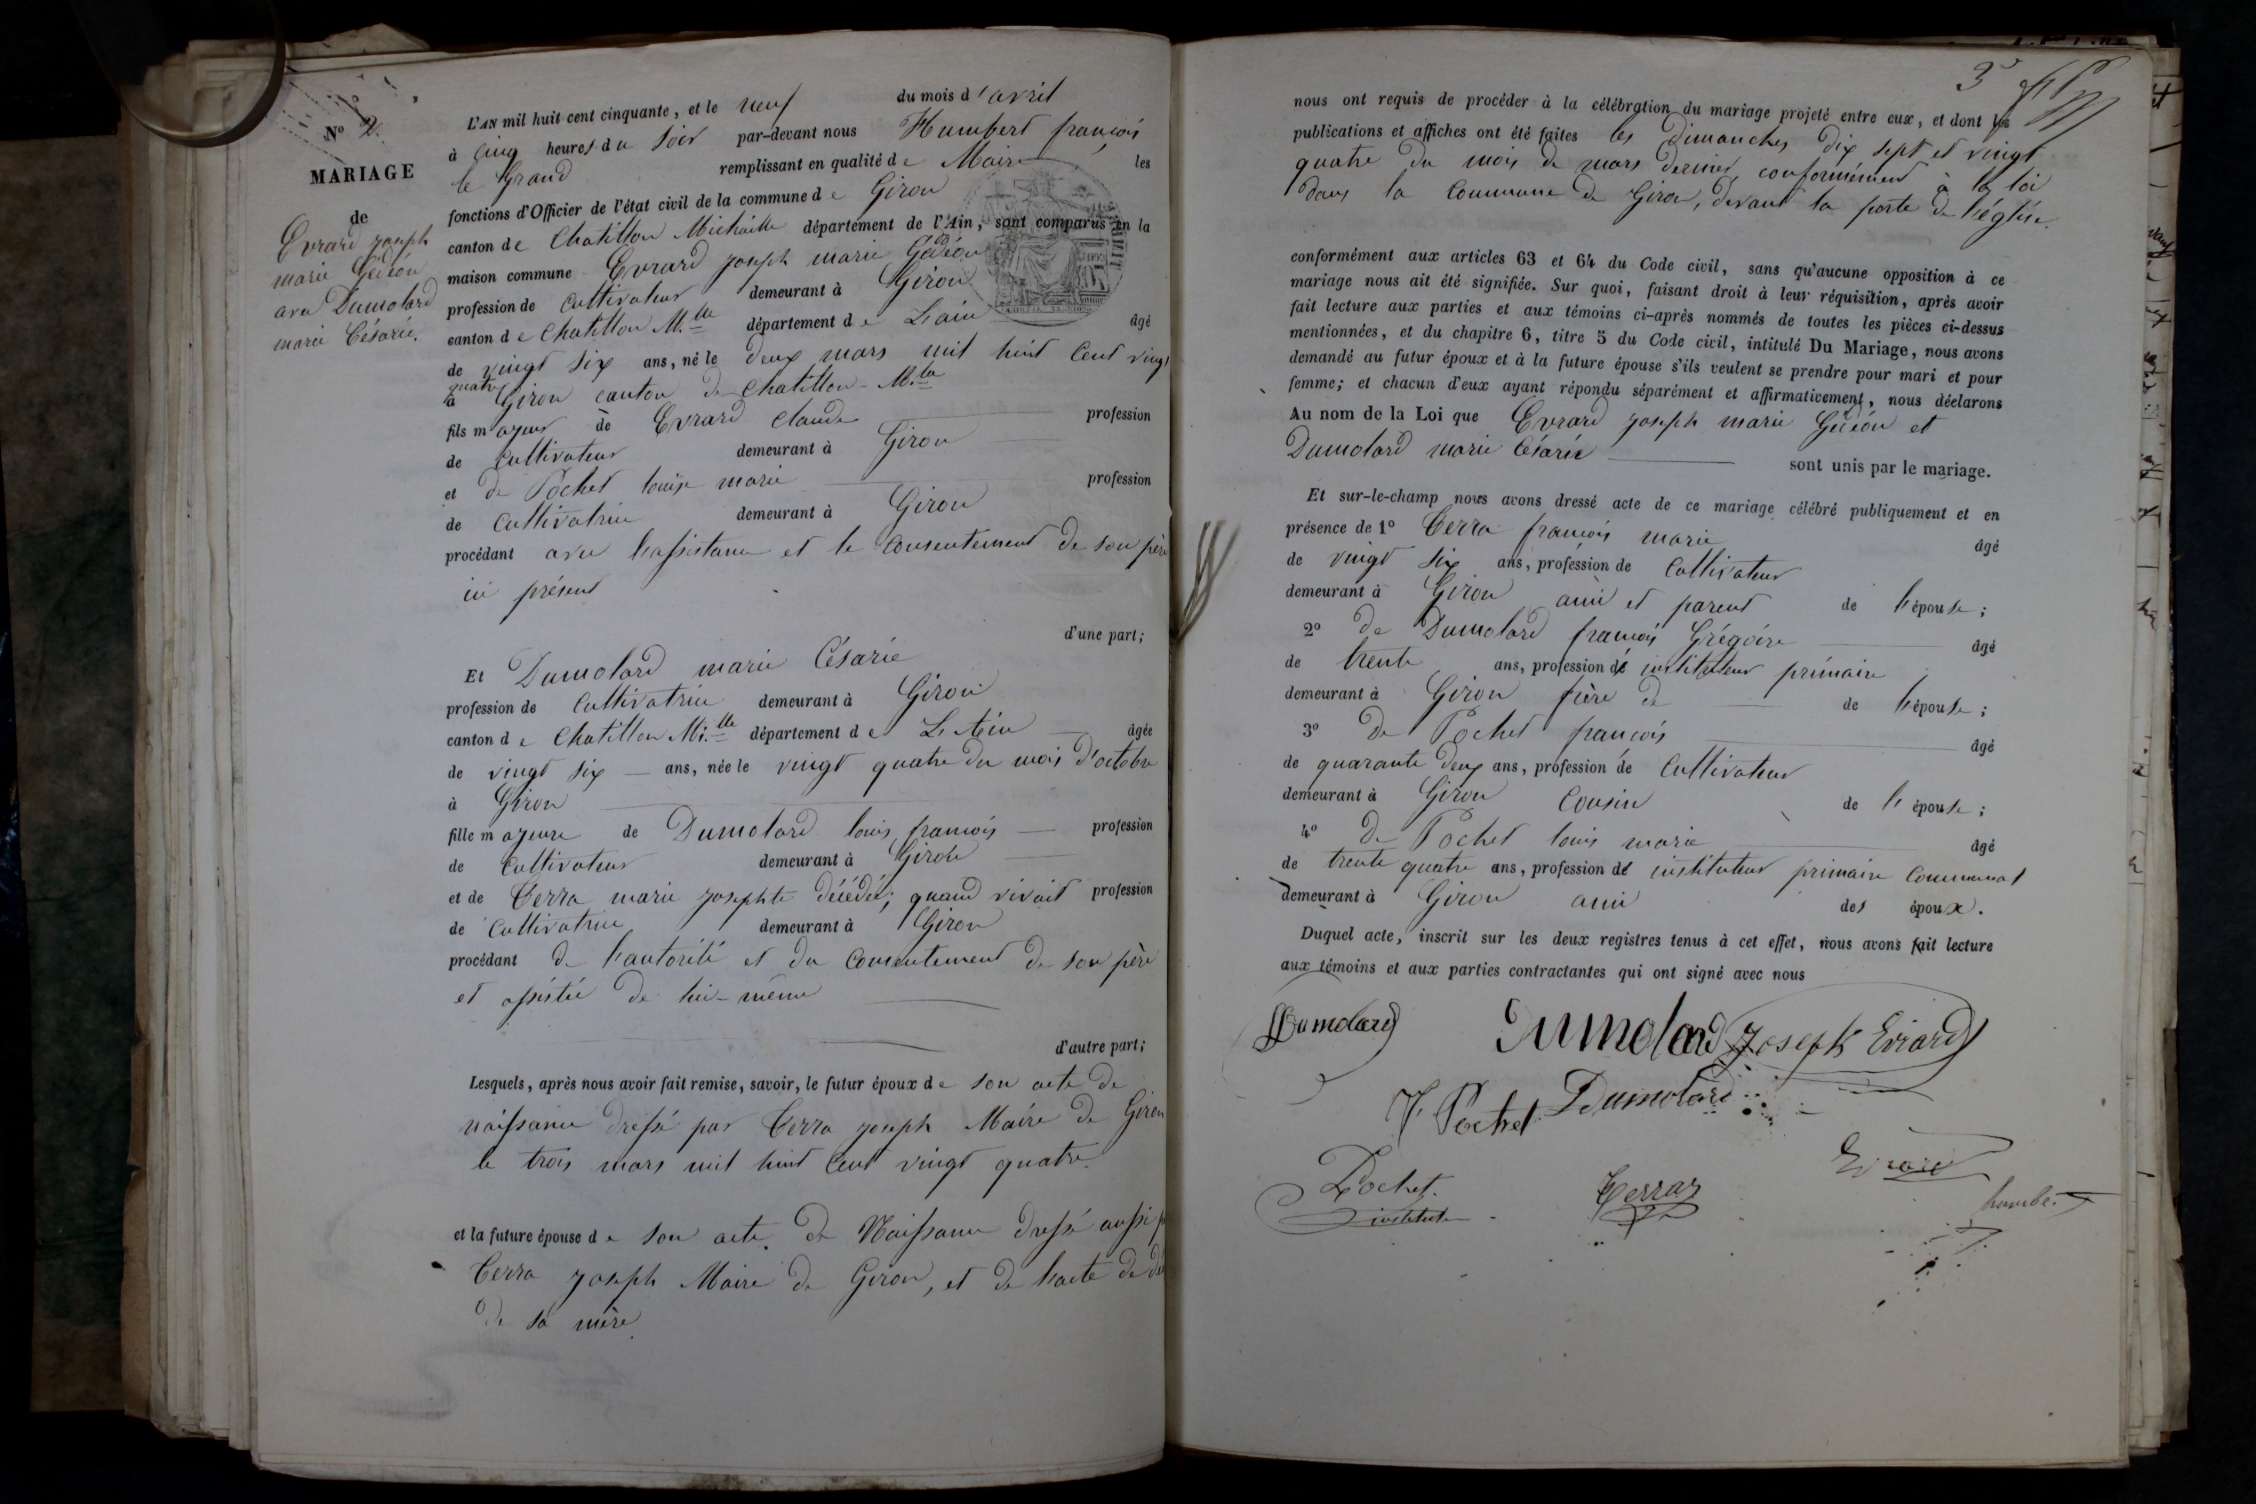 N° 2.
MARIAGE
de
Evrard joseph
marie Gédéon
avec Dumolard
marie Césarie.
L'AN mil huit cent cinquante, et le neuf du mois d'avril
à cinq heures du soir par-devant nous Humbert françois
le Grand remplissant en qualité de Maire les
fonctions d'Officier de l'état civil de la commune de Giron
canton de Chatillon Michaille département de l'Ain, sont comparus en la
maison commune Evrard joseph marie Gédéon
profession de Cultivateur demeurant à Giron
canton de Chatillon M.lle département de L'ain âgé
de vingt six ans, né le deux mars mil huit Cent vingt
quatre
à Giron canton de Chatillon M.lle
fils majeur de Evrard Claude profession
de Cultivateur demeurant à Giron
et de Pochet louise marie profession
de Cultivatrice demeurant à Giron
procédant avec l'assistance et le Consentement de son père
ici présent
d'une part;
Et Dumolard marie Césarie
profession de Cultivatrice demeurant à Giron
canton de Chatillon Mi.lle département de L'Ain âgée
de vingt six ans, née le vingt quatre du mois d'octobre
à Giron
fille majeure de Dumolard louis françois profession
de Cultivateur demeurant à Giron
et de Cerra marie josephte décédée; quand vivait profession
de Cultivatrice demeurant à Giron
procédant de l'autorité et du Consentement de son père
et assistée de lui-même
d'autre part;
Lesquels, après nous avoir fait remise, savoir, le futur époux de son acte de
naissance dressé par Cerra joseph Maire de Giron
le trois mars mil huit Cent vingt quatre.
et la future épouse de son acte de Naissance dressé aussi
Cerra joseph Maire de Giron, et de l'acte de
de sa mère.
3
nous ont requis de procéder à la célébration du mariage projeté entre eux, et dont les
publications et affiches ont été faites les Dimanches dix sept et vingt
quatre du mois de mars dernier, conformément à la loi
dans la Commune de Giron, devant la porte de l'église.
conformément aux articles 63 et 64 du Code civil, sans qu'aucune opposition à ce
mariage nous ait été signifiée. Sur quoi, faisant droit à leur réquisition, après avoir
fait lecture aux parties et aux témoins ci-après nommés de toutes les pièces ci-dessus
mentionnées, et du chapitre 6, titre 5 du Code civil, intitulé Du Mariage, nous avons
demandé au futur époux et à la future épouse s'ils veulent se prendre pour mari et pour
femme; et chacun d'eux ayant répondu séparément et affirmativement, nous déclarons
Au nom de la Loi que Evrard joseph marie Gédéon et
Dumolard marie Césarie sont unis par le mariage.
Et sur-le-champ nous avons dressé acte de ce mariage célébré publiquement et en
présence de 1° Cerra françois marie âgé
de vingt six ans, profession de Cultivateur
demeurant à Giron ami et parent de l'épouse;
2° de Dumolard françois Grégoire âgé
de trente ans, profession d'instituteur primaire
demeurant à Giron frère de de l'épouse;
3° De Pochet françois âgé
de quarante deux ans, profession de Cultivateur
demeurant à Giron Cousin de l'épouse;
4° De Pochet louis marie âgé
de trente quatre ans, profession d'instituteur primaire Communal
demeurant à Giron ami des époux.
Duquel acte, inscrit sur les deux registres tenus à cet effet, nous avons fait lecture
aux témoins et aux parties contractantes qui ont signé avec nous
Dumolard Dumolard Joseph Evrard
F Pochet Dumolard
Pochet. Cerraz Evrard